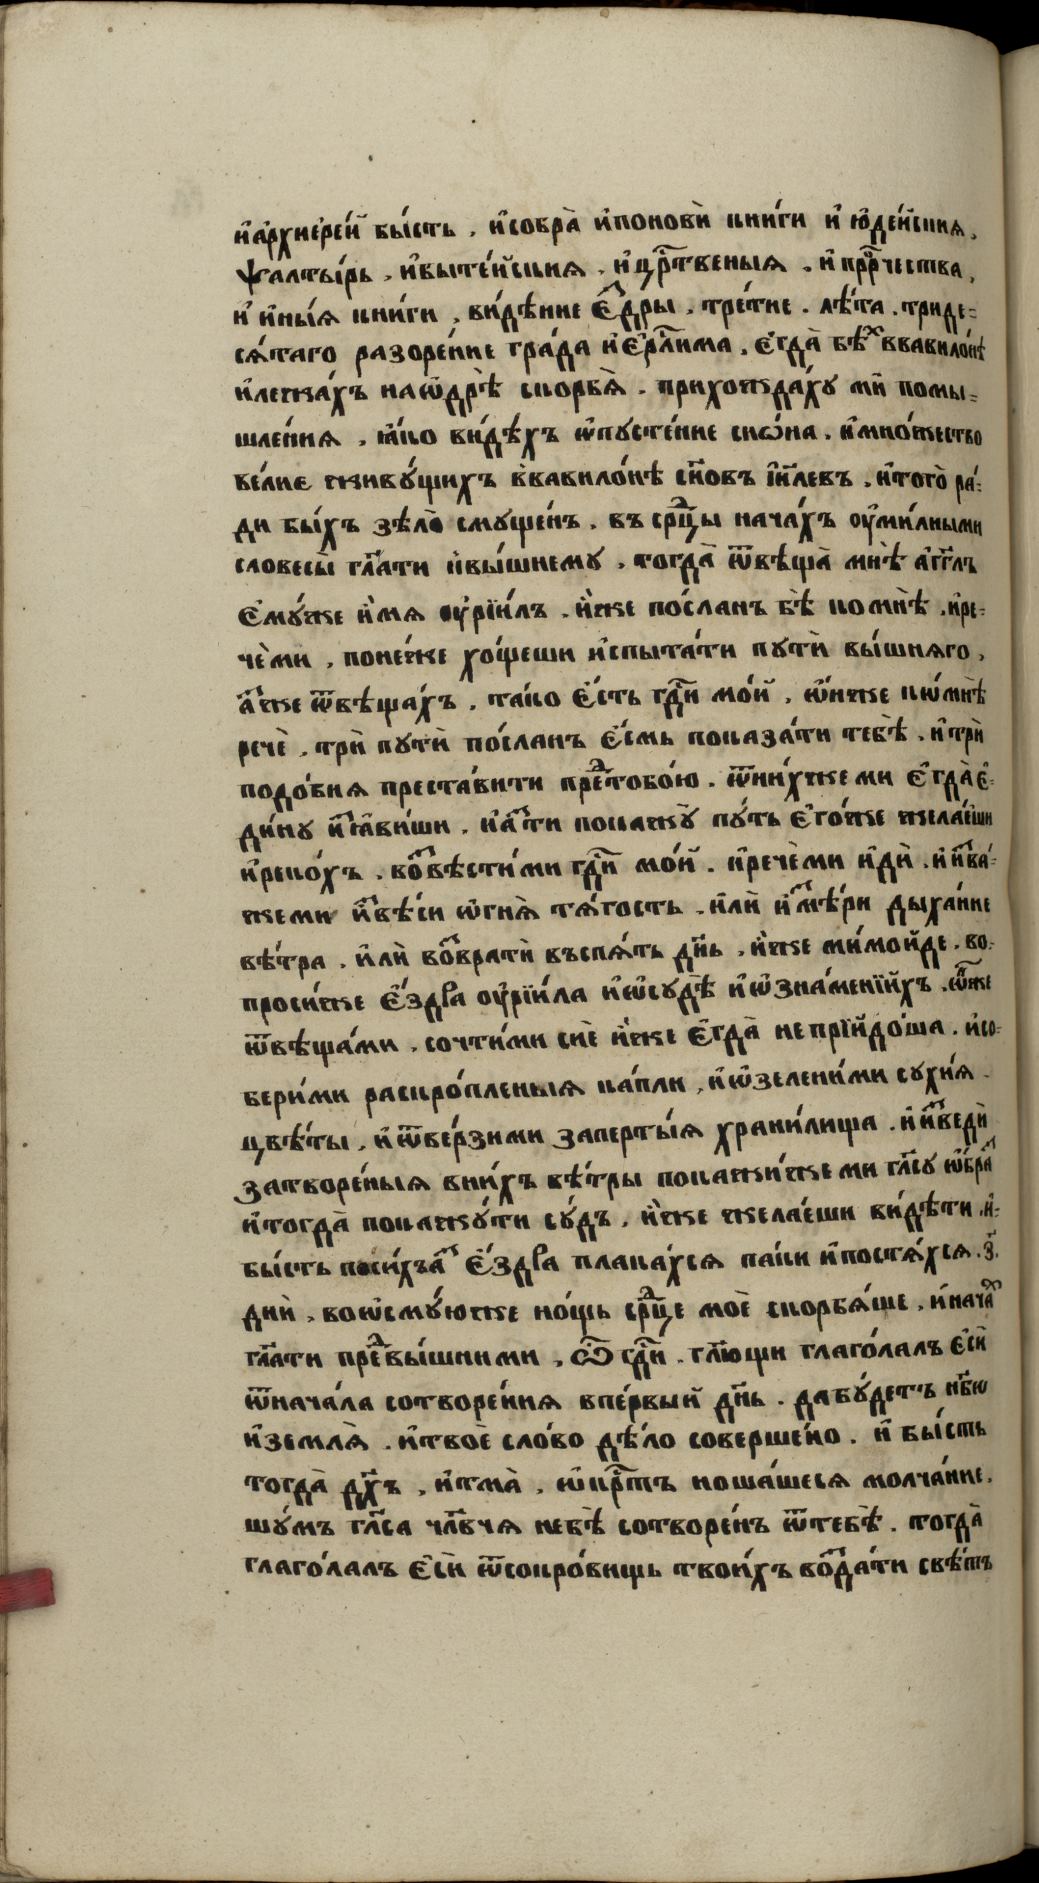 и҆а҆рхиере́й бы́сть . и҆собра̀ и҆поновѝ книги и҆ ю҆де́йския ,
ѱалты́рь , и҆быте́йския . и҆ црⷭ҇твеныѧ . и҆ прⷪ҇рчества ,
и҆ и҆ны́ѧ книги , ви́дѣние є҆́здры . тре́тие . лѣ́та . триде=
сѧ́таго разоре́ние гра́да и҆є҆рⷭ҇ли́ма . є҆гда̀ бѣⷯ ввавило́нѣ
и҆лежа́хъ наѡ҆дрѣ̀ скорбѧ̀ . прихождахꙋ ми̑ помы=
шле́ния , ꙗ҆́ко ви́дѣхъ ѡ҆пꙋсте́ние сиѡ́на . и҆мно́жество
ве́лие живꙋ́щихъ в̾вавило́нѣ сн҃овъ і҆и҃левъ . и҆того̀ ра́=
ди бы́хъ зѣ́ло̀ смꙋще́нъ . въ срⷣцы нача́хъ ᲂу҆ми́лными
словесы̀ гл҃ати к̾вы́шнемꙋ . тогда̀ ѿвѣща̀ мнѣ̀ а҆́гг҃лъ
є҆мꙋ́же и҆́мѧ ᲂу҆рїи́лъ . и҆́же по́сланъ бѣ̀ комнѣ̀ . и҆ре=
чѐми , поне́же хо́щеши и҆спыта́ти пꙋтѝ вы́шнѧго ,
а҆́зже ѿвѣща́хъ , та́ко є҆́сть гдⷭ҇и мо́й , ѡ҆́нже кѡмнѣ̀
речѐ , трѝ пꙋтѝ по́сланъ є҆́смь показа́ти тебѣ̀ . и҆трѝ
подо́биѧ преста́вити преⷣтобо́ю . ѿнихже ми є҆гда̀ є҆=
ди́нꙋ и҆з̾ѧ́виши . и҆а҆́зти покажꙋ̀ пꙋ́ть є҆го́же жела́еши
и҆реко́хъ . возвѣсти́ми гдⷭ҇и мо́й . и҆речѐми и҆дѝ . и҆ и҆зва=
жеми и҆звѣ́си ѡ҆гнѧ̀ тѧ́гость . и҆лѝ и҆змѣ́ри дыха́ние
вѣ́тра . и҆лѝ возвратѝ въспѧ́ть дн҃ь , и҆́же ми́мойде . во=
проси́же є҆́здра ᲂу҆рїи́ла и҆ѡ҆сꙋдѣ̀ и҆ѡ҆зна́менїихъ . ѡ҆́нже
ѿвѣща́ми . сочти́ми сиѐ и҆́же є҆гда̀ не прїидо́ша . и҆со=
бери́ми раскро́пленыѧ ка́пли , и҆ѡ҆зелени́ми сꙋхи́ѧ
цвѣ́ты , и҆ѿве́рзими заперты́ѧ храни́лища . и҆ и҆зведѝ
затворе́ныѧ вни́хъ вѣ́тры покажи́же ми гл҃сꙋ ѡ҆́браз
и҆тогда̀ покажꙋ́ти сꙋ́дъ , и҆́же жела́еши ви́дѣти . и҆=
бы́сть поси́хъаз є҆́здра плака́хсѧ паки и҆постѧ́хсѧ . з҃ .
днѝ , воѡ҆смꙋ́юже но́щь срⷣце моѐ скорбѧ́ше , и҆нача́х
гл҃ати преⷣвы́шними , ѽ гдⷭ҇и . гл҃ющи глаго́лалъ є҆сѝ
ѿнача́ла сотворе́ниѧ впе́рвый дн҃ь . дабꙋ́детъ нб҃ѡ
и҆землѧ̀ . и҆твоѐ сло́во дѣ́ло соверше́но . и҆ бы́сть
тогда̀ дх҃ъ , и҆тма̀ , ѡ҆крⷭ҇тъ ноша́шесѧ молча́ние ,
шꙋ́мъ гл҃са чл҃вчѧ небѣ̀ сотворе́нъ ѿтебѣ̀ . тогда̀
глаго́лалъ є҆сѝ ѿсокро́вищь твои́хъ возда́ти свѣ́тъ